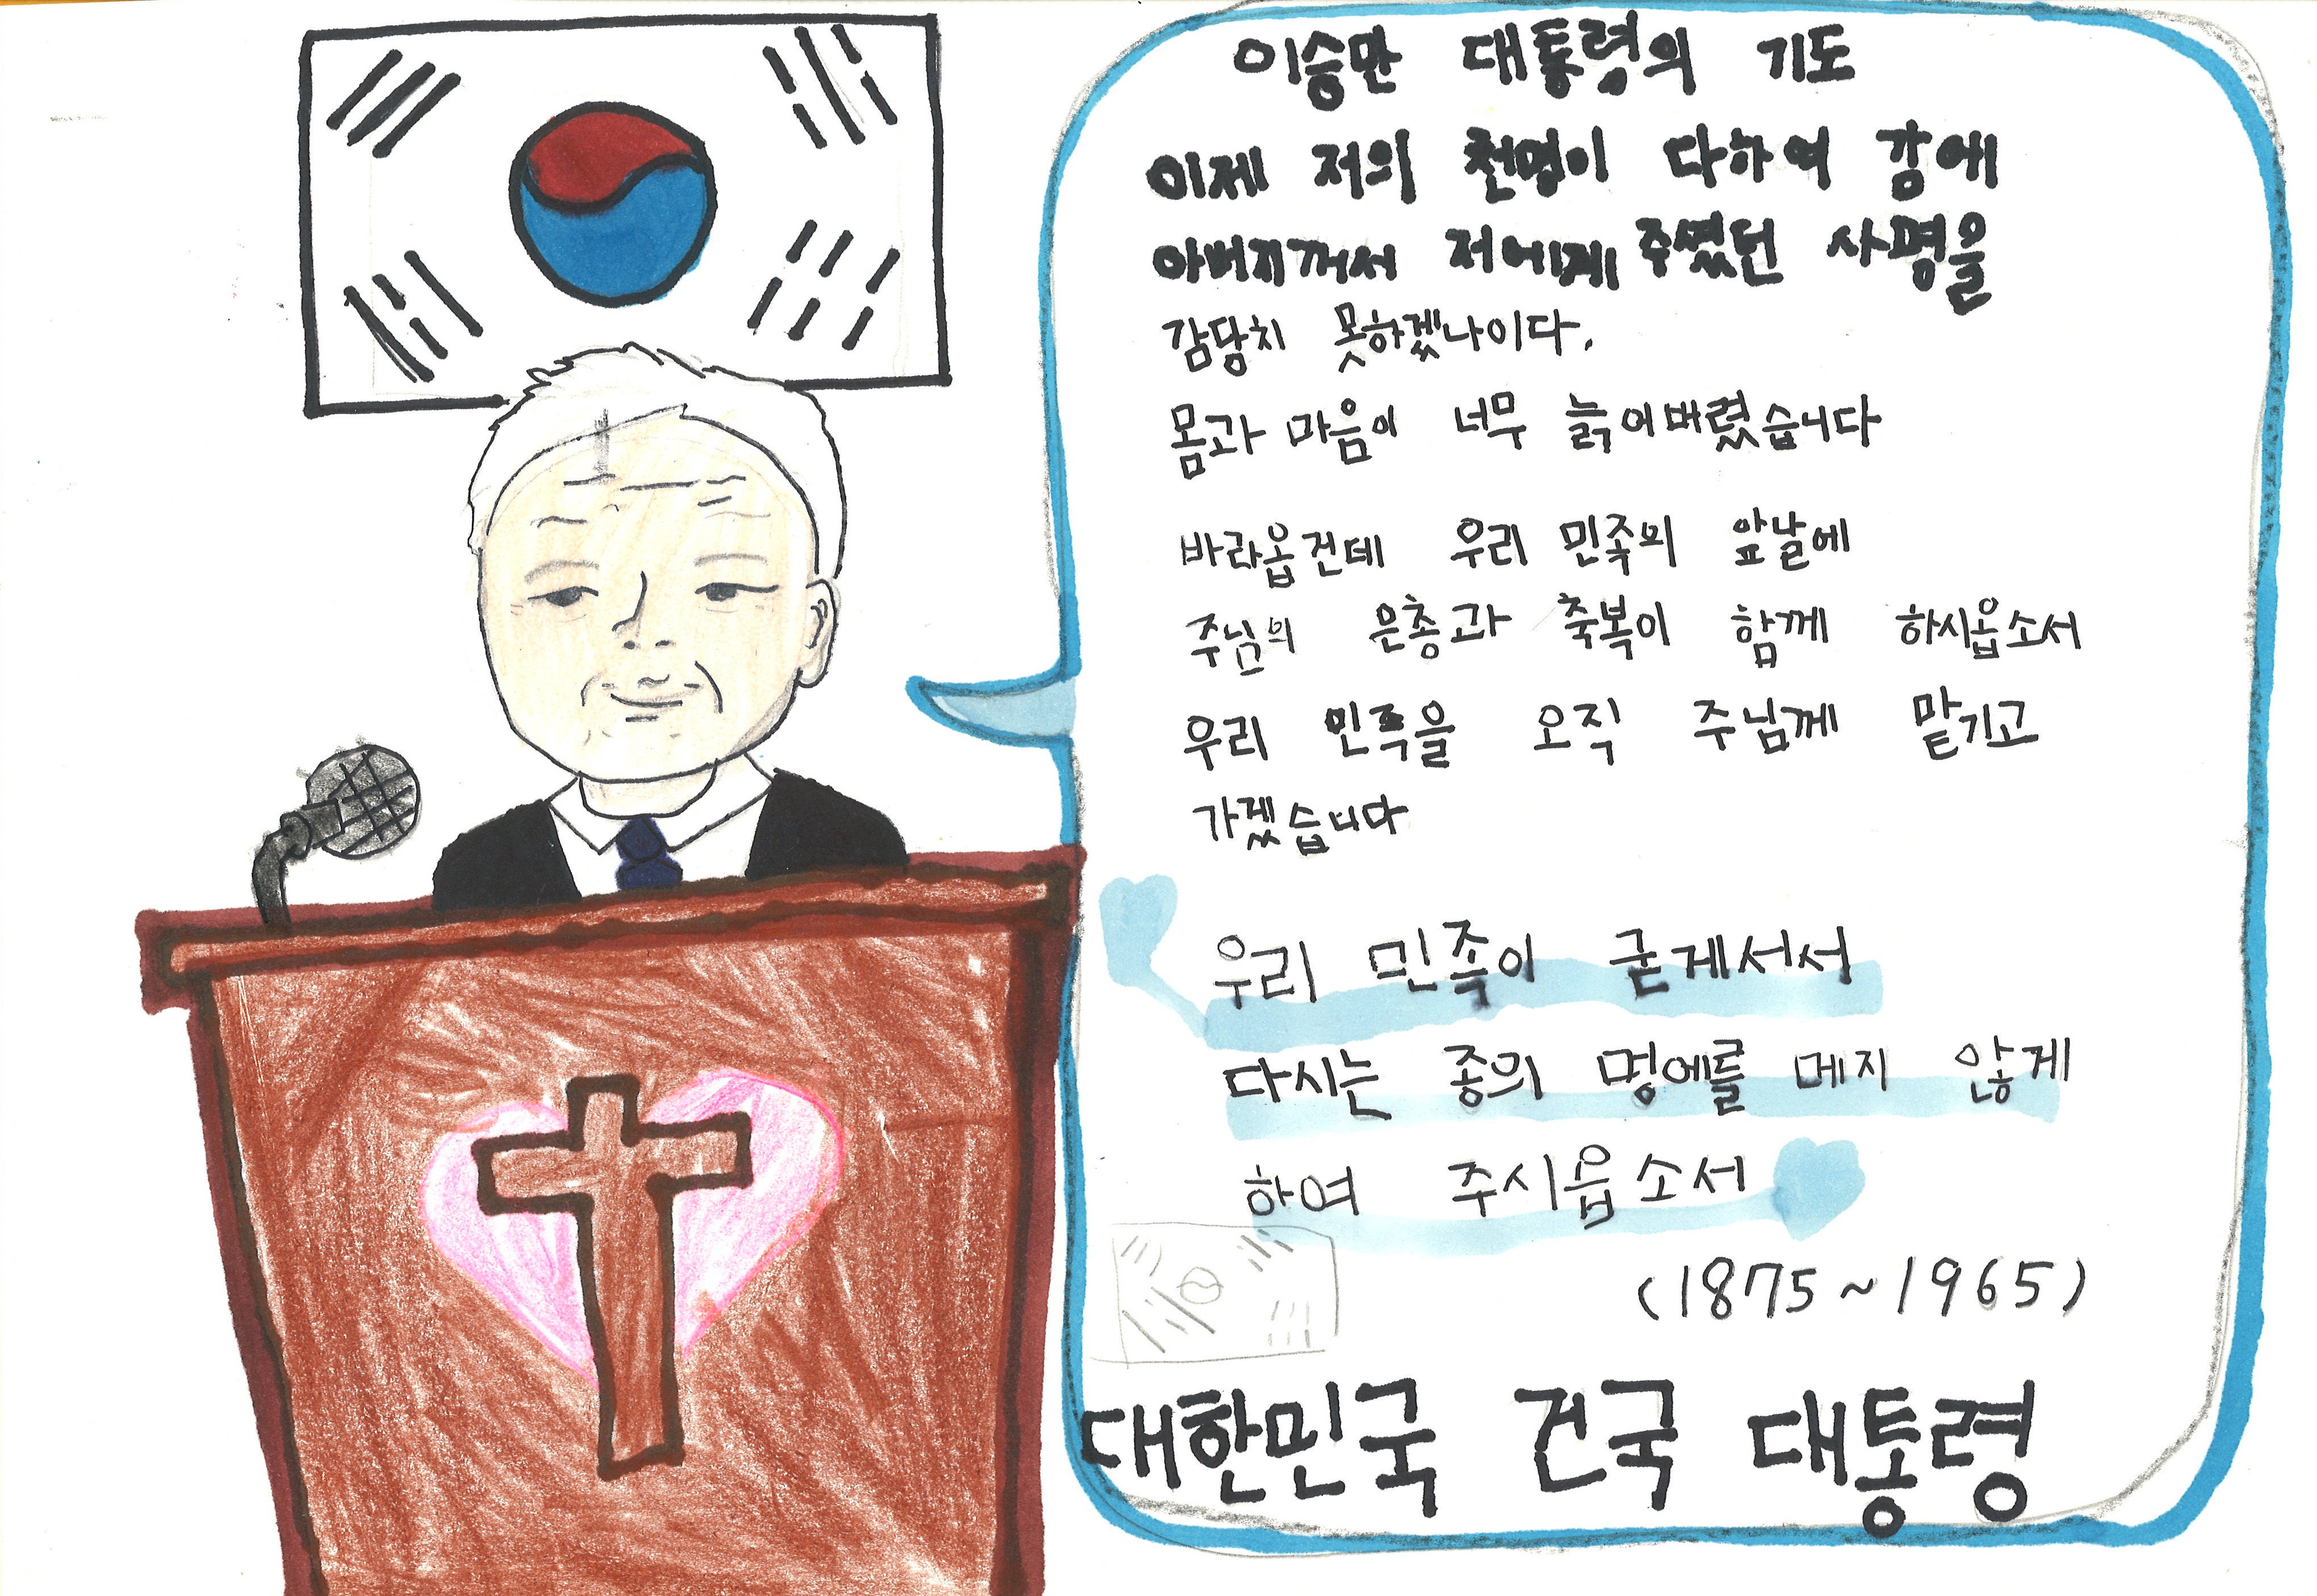 이승만 대통령의 기도
이제 저의 천명이 다하여 감에
아버지께서 저에게 주셨던 사명을
감당치 못하겠나이다.
몸과 마음이 너무 늙어버렸습니다
바라옵건데 우리 민족의 앞날에
주님의 은총과 축복이 함께 하시옵소서
우리 민족을 오직 주님께 맡기고
가겠습니다
우리 민족이 굳게서서
다시는 종의 멍에를 메지 않게
하여 주시옵소서
(1875~1965)
대한민국 건국 대통령